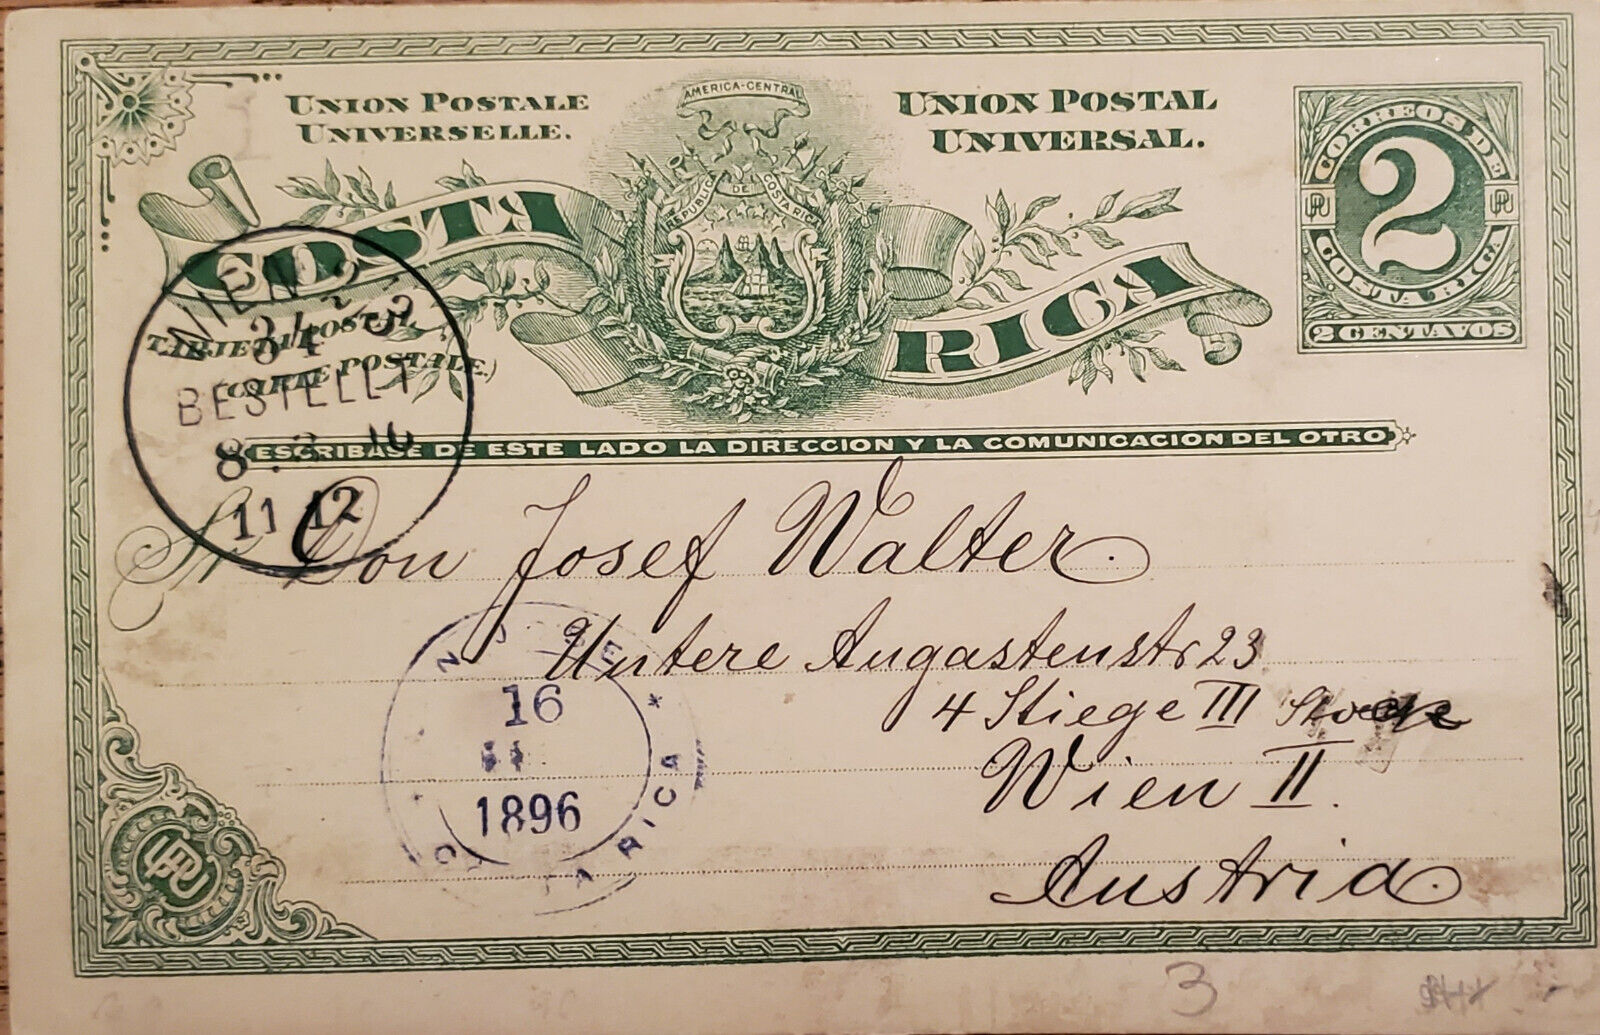 AMERICA-CENTRAL
UNION POSTALE
UNIVERSELLE.
UNION POSTAL
UNIVERSAL.
REPUBLICA DE COSTA RICA
COSTA RICA
CORREOS DE
2
COSTA RICA
2 CENTAVOS
TARJETA POSTAL
(CARTE POSTALE.)
WIEN 2
BESTELLT
11 12
ESCRIBASE DE ESTE LADO LA DIRECCION Y LA COMUNICACION DEL OTRO
Sr. Don Josef Walter.
Untere Augastenstr 23
4 Stiege III Stock
Wien II.
Austria.
16
1896
RICA *
UPU
3